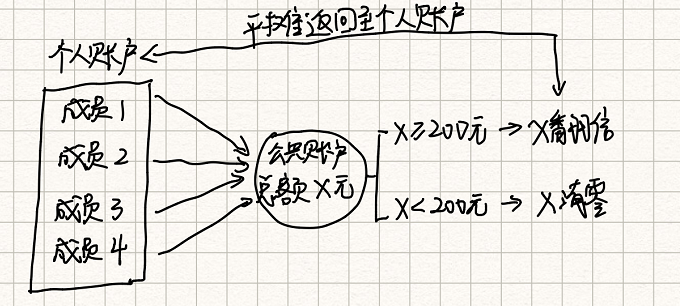 平均往返回至个人账户
个人账户
成员1
成员2
成员3
成员4
公共账户
总额X元
X≥200元→X翻倍
X<200元→X清零